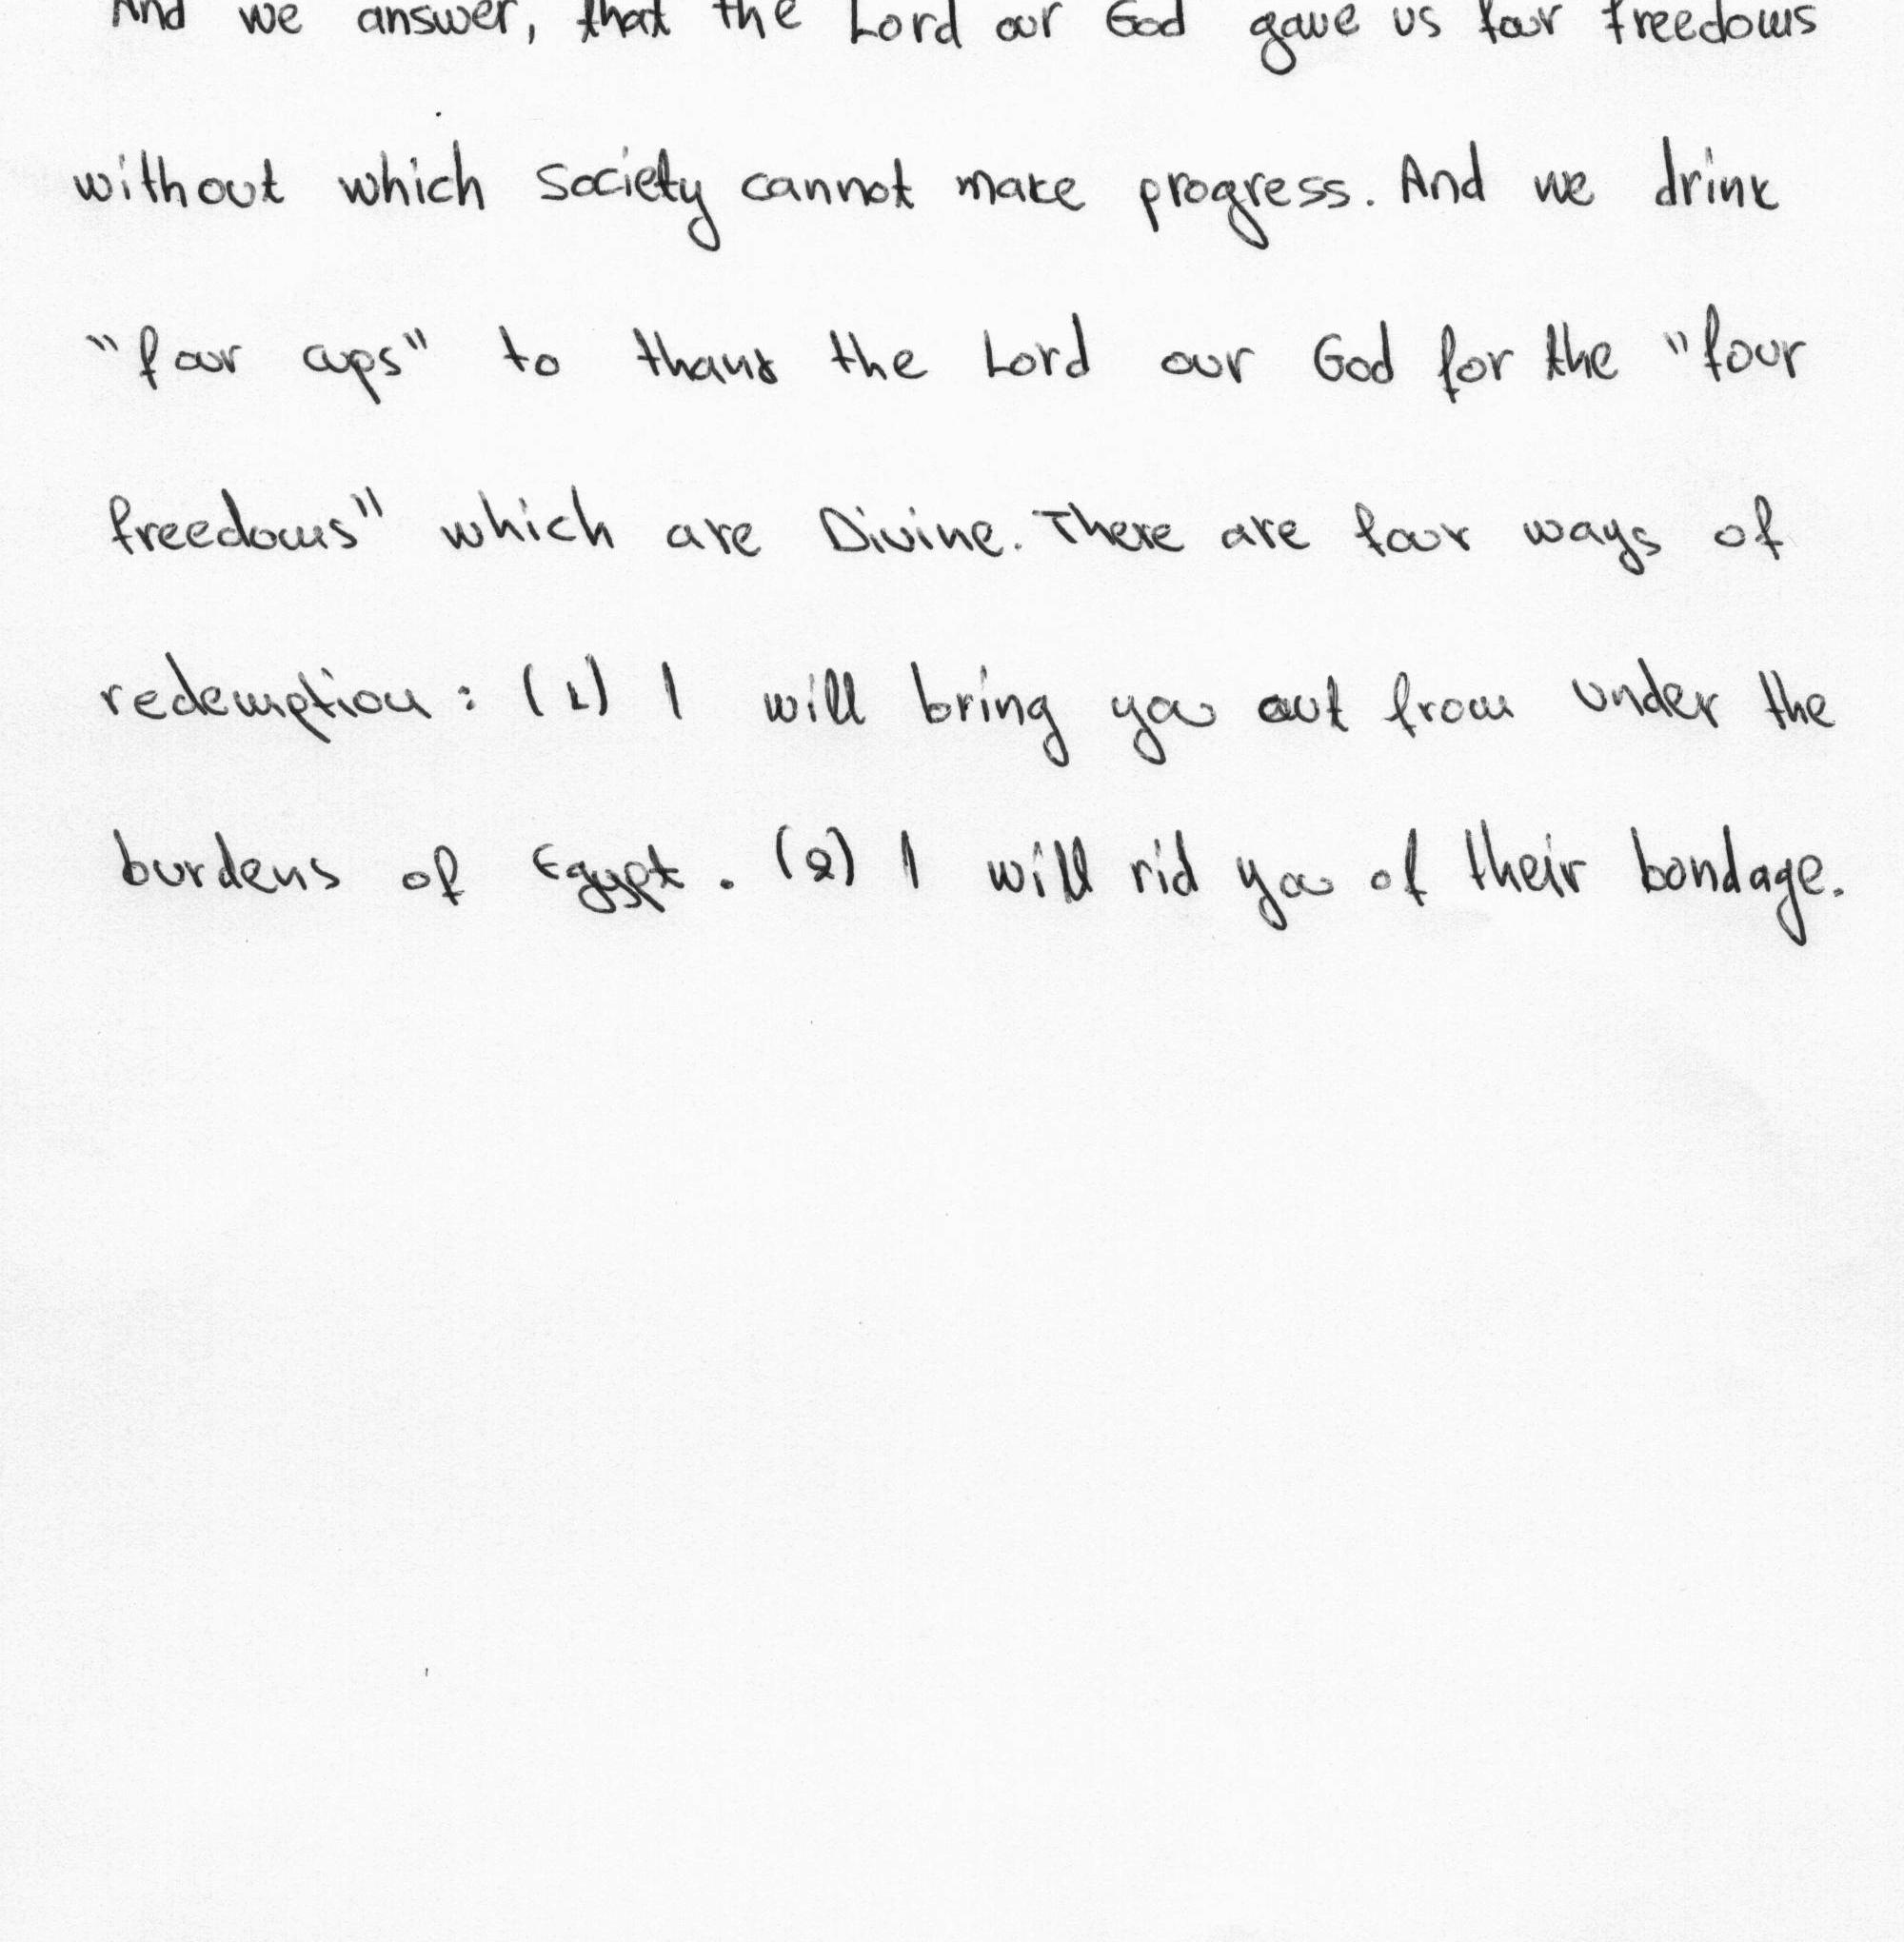 And we answer, that the Lord our God gave us four freedoms
without which society cannot make progress. And we drink
"four cups" to thank the Lord our God for the "four
freedoms" which are Divine. There are four ways of
redemption : (1) I will bring you out from under the
burdens of Egypt . (2) I will rid you of their bondage.